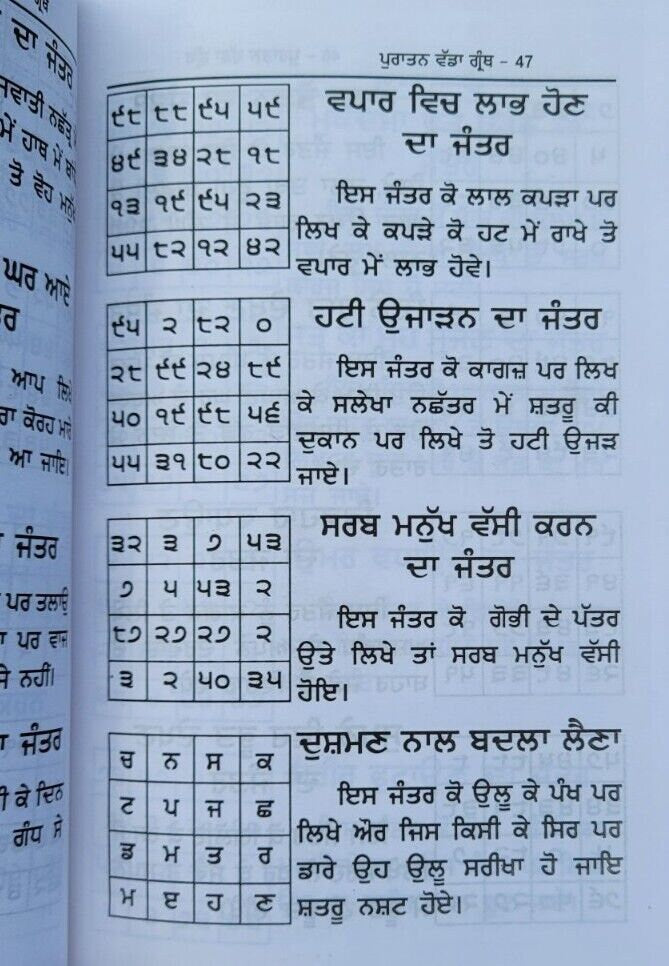 ਪੁਰਾਤਨ ਵੱਡਾ ਗ੍ਰੰਥ – 47
ਵਪਾਰ ਵਿਚ ਲਾਭ ਹੋਣ
ਦਾ ਜੰਤਰ
੯੮ ੮੮ ੯੫ ੫੯
੪੯ ੩੪ ੨੮ ੧੮
੧੩ ੧੯ ੯੫ ੨੩
੫੫ ੮੨ ੧੨ ੪੨
ਇਸ ਜੰਤਰ ਕੋ ਲਾਲ ਕਪੜਾ ਪਰ
ਲਿਖ ਕੇ ਕਪੜੇ ਕੋ ਹਟ ਮੇਂ ਰਾਖੇ ਤੋ
ਵਪਾਰ ਮੇਂ ਲਾਭ ਹੋਵੇ।
ਹਟੀ ਉਜਾੜਨ ਦਾ ਜੰਤਰ
੯੫ ੨ ੮੨ ੦
੨੮ ੯੯ ੨੪ ੮੯
੫੦ ੧੯ ੯੮ ੫੬
੫੫ ੩੧ ੮੦ ੨੨
ਇਸ ਜੰਤਰ ਕੋ ਕਾਗਜ਼ ਪਰ ਲਿਖ
ਕੇ ਸਲੇਖਾ ਨਛੱਤਰ ਮੇਂ ਸ਼ਤਰੂ ਕੀ
ਦੁਕਾਨ ਪਰ ਲਿਖੇ ਤੋ ਹਟੀ ਉਜੜ
ਜਾਏ।
ਸਰਬ ਮਨੁੱਖ ਵੱਸੀ ਕਰਨ
ਦਾ ਜੰਤਰ
੩੨ ੩ ੭ ੫੩
੭ ੫ ੫੩ ੨
੮੭ ੨੭ ੨੭ ੨
੩ ੨ ੫੦ ੩੫
ਇਸ ਜੰਤਰ ਕੋ ਗੋਭੀ ਦੇ ਪੱਤਰ
ਉਤੇ ਲਿਖੇ ਤਾਂ ਸਰਬ ਮਨੁੱਖ ਵੱਸੀ
ਹੋਇ।
ਦੁਸ਼ਮਣ ਨਾਲ ਬਦਲਾ ਲੈਣਾ
ਚ ਨ ਸ ਕ
ਟ ਪ ਜ ਛ
ਡ ਮ ਤ ਰ
ਮ ੲ ਹ ਣ
ਇਸ ਜੰਤਰ ਕੋ ਉਲੂ ਕੇ ਪੰਖ ਪਰ
ਲਿਖੇ ਔਰ ਜਿਸ ਕਿਸੀ ਕੇ ਸਿਰ ਪਰ
ਡਾਰੇ ਉਹ ਉਲੂ ਸਰੀਖਾ ਹੋ ਜਾਇ
ਸ਼ਤਰੂ ਨਸ਼ਟ ਹੋਏ।
ਦਾ ਜੰਤਰ
ਘਰ ਆਏ
ਆਪ ਲਿਖੇ
ਆ ਜਾਇ।
ਜੰਤਰ
ਪਰ ਤਲਾਉ
ਪਰ ਵਾਜ
ਨਹੀਂ।
ਜੰਤਰ
ਕੇ ਦਿਨ
ਗੰਧ ਸੇ